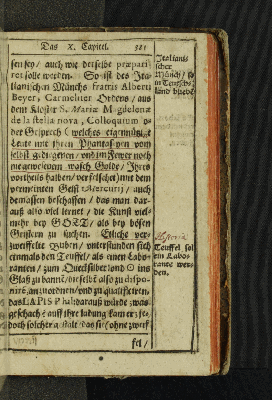 Das X. Capitel. 321
sen sey / auch wie derselbe præpari-
ret solle werden. So ist des Ita-
lianischen Münchs fratris Alberti
Beyer, Carmeliter Ordens / aus
dem Kloster S. Mariæ Magdelenæ
de la stella nova, Colloquium o-
der Gesprech (welches eigennützige
Leute mit ihren Phantasyen vom
selbst gediegenen / und im Fewer noch
nie gewesenem wasch Golde / Ihres
vortheils halben / verfelschet) mit dem
vermeinten Geist Mercurij / auch
dermassen beschaffen / das man dar-
auß also viel lernet / die Kunst viel-
mehr bey GOTT / als bey bösen
Geistern zu suchen. Etliche ver-
zweiffelte Buben / unterstunden sich
einmals den Teuffel / als einen Labo-
ranten / zum Quecksilber und ☉ ins
Glaß zu bannen / dieselbe also zu dispo-
nirn, anzuordnen / und zu qualificiren,
das LAPIS Phil: darauß würde: was
geschach? auff ihre ladung kam er zwar
doch solcher gestalt / das sie ohne zweif-
fel /
Italiani-
scher
Münch / in
Teutsch-
land
Historia
Teuffel sol
ein Labo-
rante wer-
den.